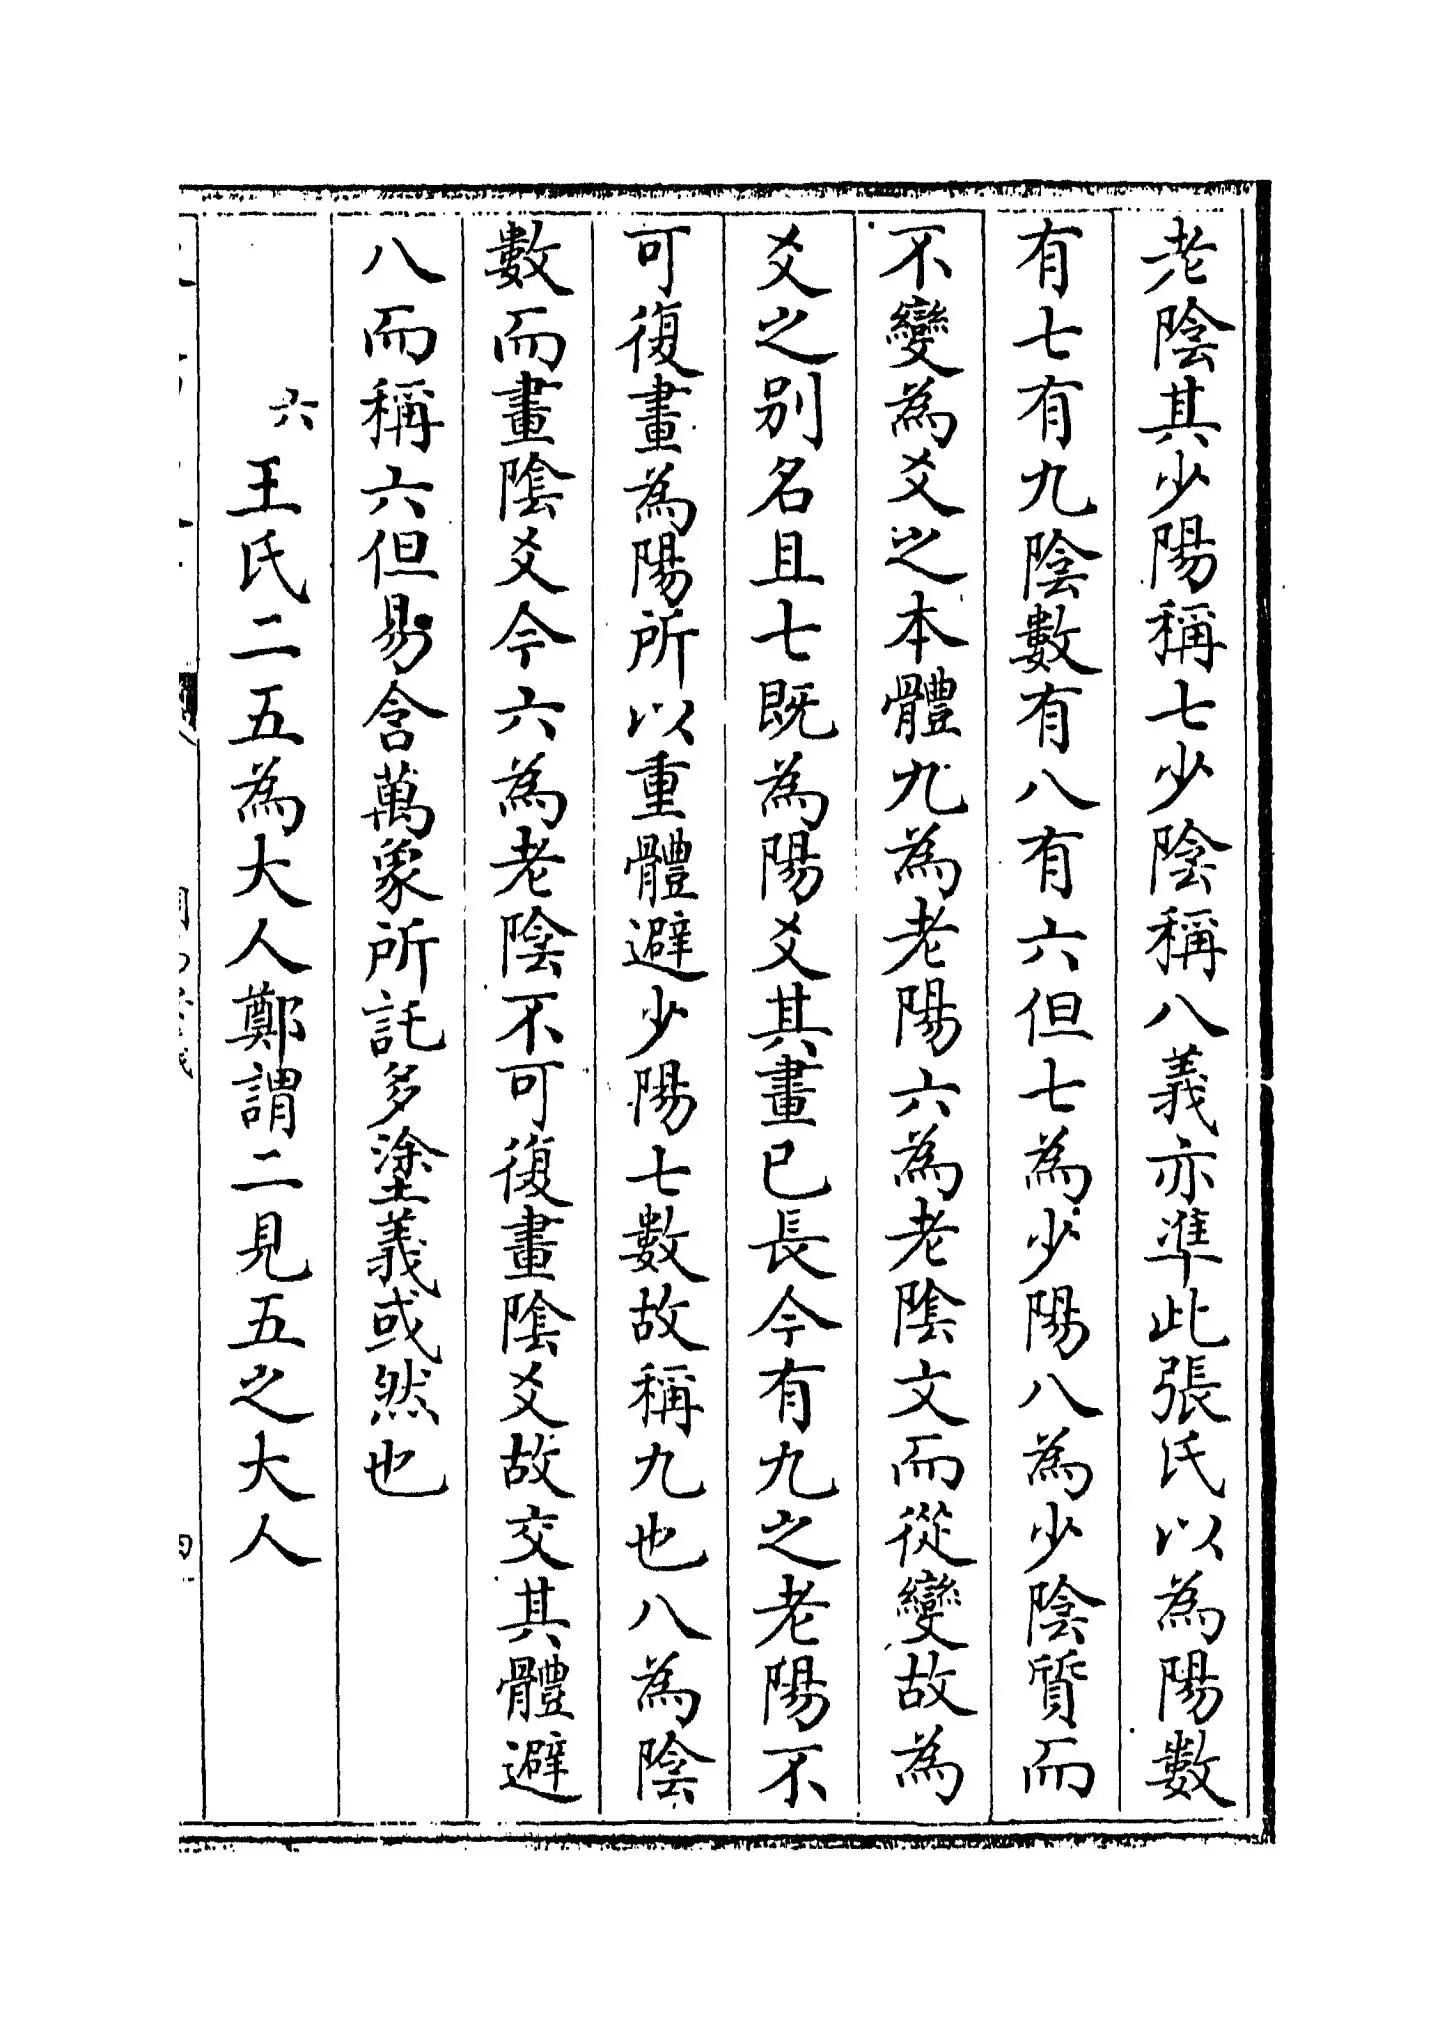 老陰其少陽稱七少陰稱八義亦準此張氏以為陽數
有七有九陰數有八有六但七為少陽八為少陰質而
不變為爻之本體九為老陽六為老陰文而從變故為
爻之别名且七既為陽爻其畫已長今有九之老陽不
可復畫為陽所以重體避少陽七數故稱九也八為陰
數而畫陰爻今六為老陰不可復畫陰爻故交其體避
八而稱六但易含萬象所託多塗義或然也
六 王氏二五為大人鄭謂二見五之大人